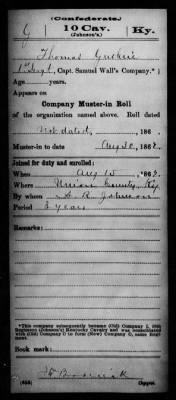 (Confederate.)
G 10 Cav. Ky.
(Johnson's.)
Thomas Guthrie
1" Sgt, Capt. Samuel Wall's Company.*
Age years.
Appears on
Company Muster-in Roll
of the organization named above. Roll dated
Not dated, 186 .
Muster-in to date Aug 30, 1862
Joined for duty and enrolled:
When Aug 15, 1862
Where Union County, Ky.
By whom A R Johnson
Period 3 years
Remarks:
*This company subsequently became (Old) Company
Regiment (Johnson's) Kentucky Cavalry and was consolidated
with (Old) Company C to form (New) Company C, same Regiment.
Book mark:
(656) Copyist.